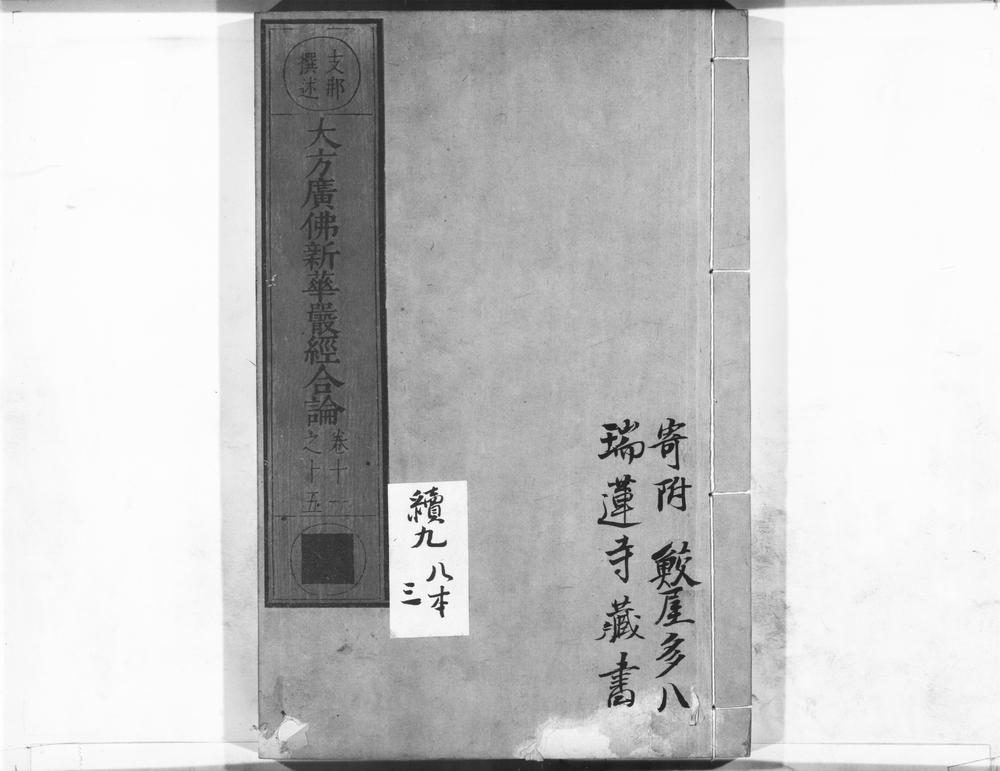 寄附 鮫屋多八
瑞蓮寺藏書
支那
撰述
大方廣佛新華嚴經合論
卷十一
之十五
續九
八本
三